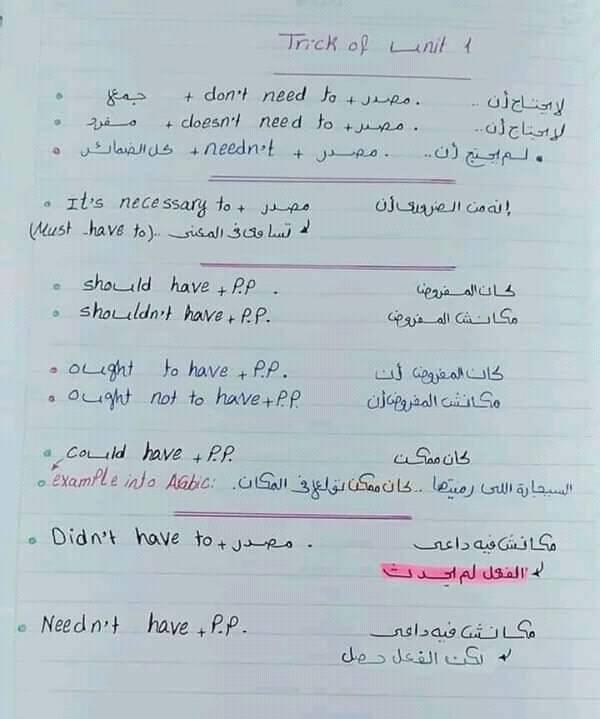 Trick of Unit 1
• جمع + don't need to + مصدر. لا يحتاج أن ..
• مفرد + doesn't need to + مصدر. لا يحتاج أن ..
• كل الضمائر + needn't + مصدر. لم يحتج أن ..
• It's necessary to + مصدر إنه من الضرورى أن
(Must -have to) .. تساوى فى المعنى
• should have + P.P . كان المفروض
• shouldn't have + P.P. مكانش المفروض
• Ought to have + P.P. كان المفروض أن
• Ought not to have + P.P. مكانش المفروض أن
• Could have + P.P. كان ممكن
• example into Arabic: السيجارة اللى رميتها .. كان ممكن تولع فى المكان.
• Didn't have to + مصدر . مكانش فيه داعى
الفعل لم يحدث
• Needn't have + P.P. مكانش فيه داعى
لكن الفعل حصل